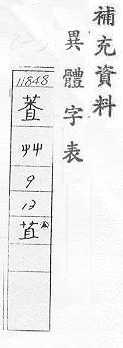 補充資料
異體字表
11848
艸
9
13